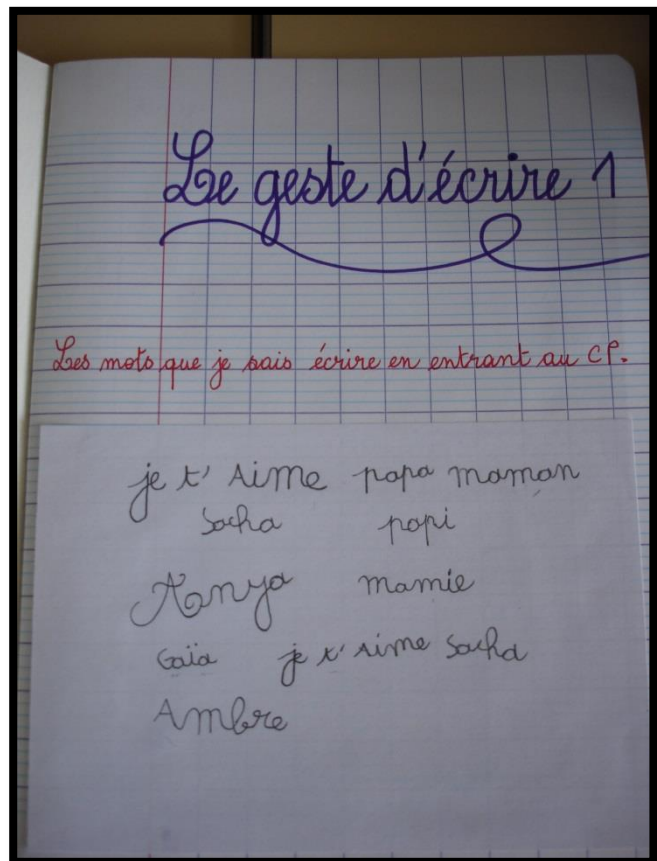 Le geste d'écrire 1
Les mots que je sais écrire en entrant au CP.
je t'Aime papa maman
Sacha papi
Aanya mamie
Gaïa je t'Aime Sacha
Ambre